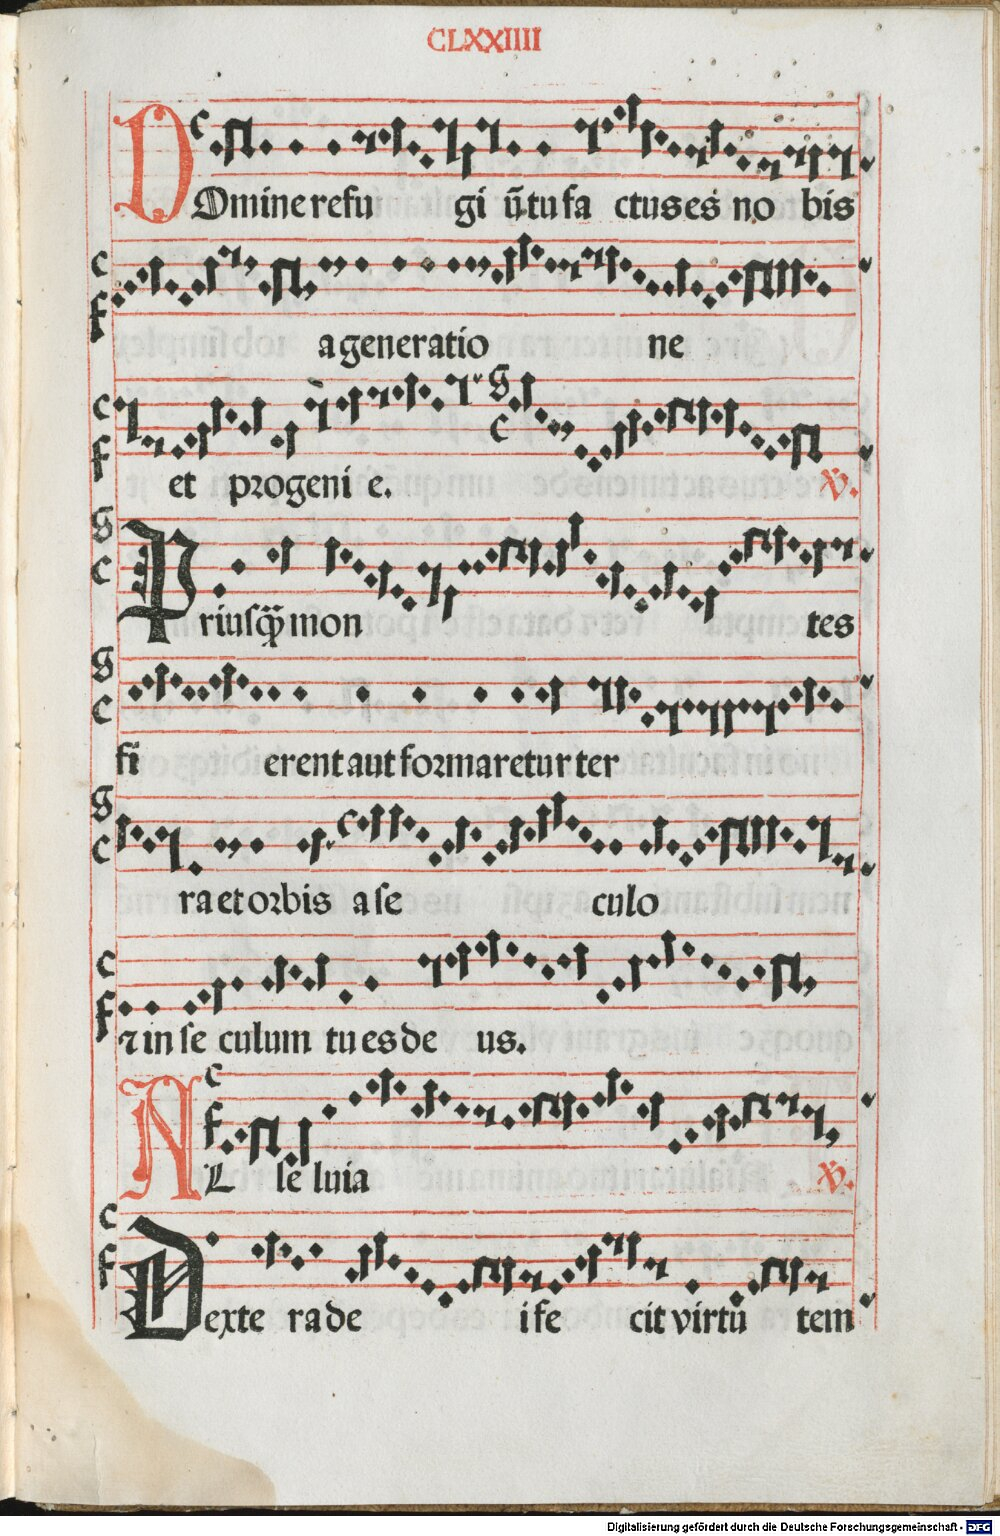 CLXXIIII
DOmine refu gi ūtu fa ctus es no bis
a generatio ne
et progeni e. ℣.
Priusq̃ mon tes
fi erent aut formaretur ter
ra et orbis a se culo
⁊ in se culum tu es de us.
AL le luia ℣.
Dexte ra de i fe cit virtū tem
Digitalisierung gefördert durch die Deutsche Forschungsgemeinschaft - DFG